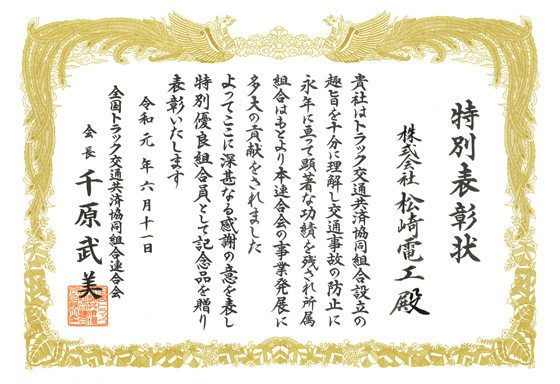 特別表彰状
株式会社 松崎電工殿
貴社はトラック交通共済協同組合設立の
趣旨を十分に理解し交通事故の防止に
永年に亘って顕著な功績を残され所属
組合はもとより本連合会の事業発展に
多大の貢献をされました
よってここに深甚なる感謝の意を表し
特別優良組合員として記念品を贈り
表彰いたします
令和元年六月十一日
全国トラック交通共済協同組合連合会
会長 千原武美